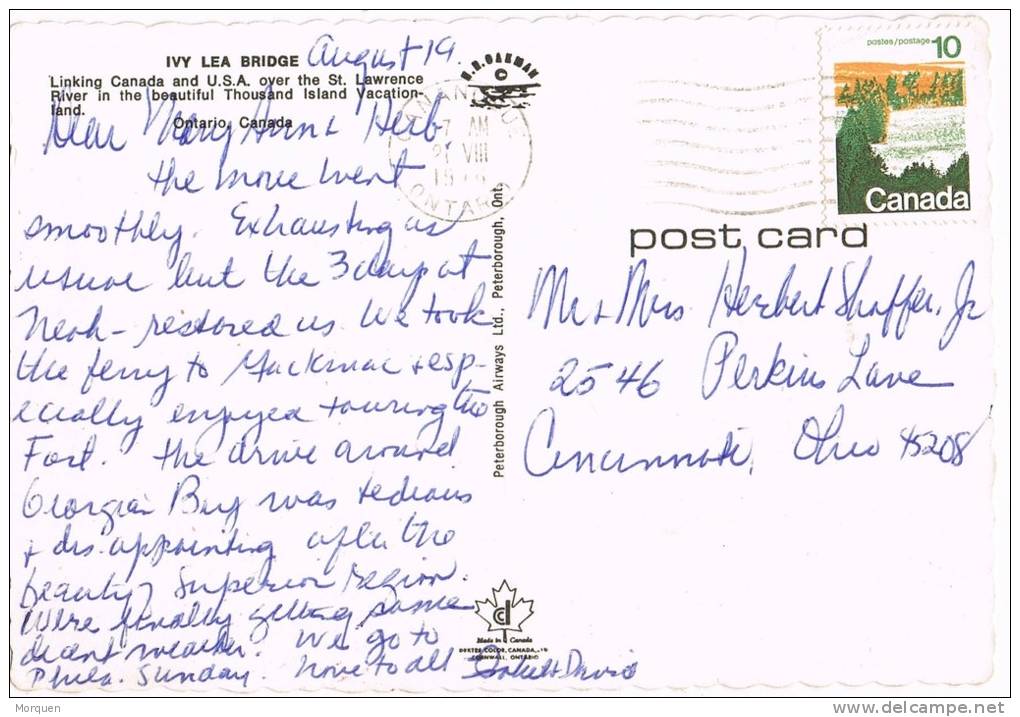 IVY LEA BRIDGE
Linking Canada and U.S.A. over the St. Lawrence
River in the beautiful Thousand Island Vacation-
land.
Ontario, Canada
August 19.
Dear Mary Ann & Herb
the move went
smoothly. Exhausting as
usual but the 3 days at
- restored us. We took
the ferry to Mackinac & esp-
ecially enjoyed touring the
Fort. The drive around
Georgian Bay was tedious
& disappointing after the
beauty Superior region.
We're finally getting some
decent weather. We go to
Phila. Sunday. Love to all
& David
H.R. OAKMAN
©
GANANOQUE
AM
VIII
ONTARIO
Peterborough Airways Ltd., Peterborough, Ont.
postes/postage 10
Canada
post card
Mr & Mrs Herbert Shaffer, Jr
2546 Perkins Lane
Cincinnati, Ohio 45208
Made in Canada
DEXTER COLOR, CANADA,
CORNWALL, ONTARIO
Morquen
delcampe.net